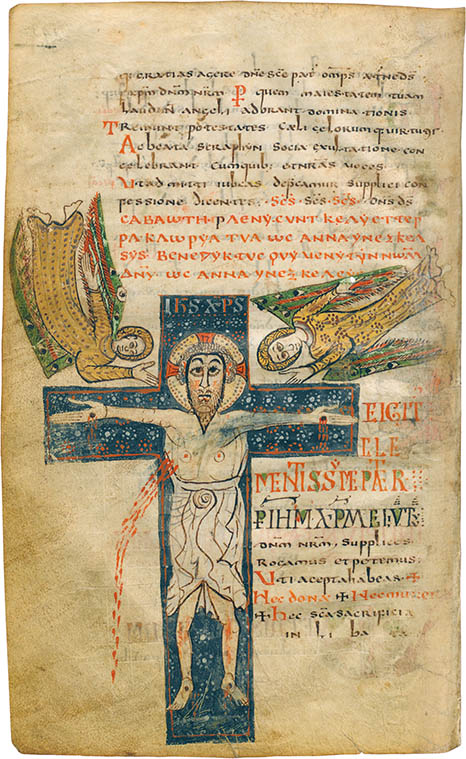 gratias agere dne sce pat omps
p xpm dnm nrm P quem maiestatem tuam
laudan angeli adorant dominationis
Tremunt potestates caeli celorumque virtutis
Ac beata seraphyn socia exultatione con
celebrant cumquib: et nras voces
Ut admitti iubeas depcamur supplici con
fessione dicentes. Scs Scs Scs dns ds
CABAWTH PLENY CUNT KELY ETTER
RA KLWRYA TUA WC ANNA YN EXKEL
SYS BENEDYKTUC QUY UENYT YN NWM
DNY WC ANNA YN EXKELCY
IHS XPS
EIGIT
ELE
MENTISSYME PATER
P IHM XPM
dnm nrm, supplices
Rogamus et petemus
Uti acepta habeas
Hec dona Hec munera
Hec sca sacrificia
in li ba ta